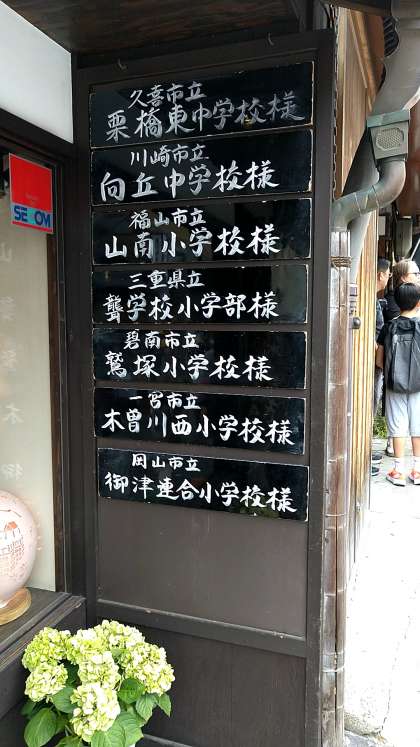 久喜市立
栗橋東中学校様
川崎市立
向丘中学校様
福山市立
山南小学校様
三重県立
聾学校小学部様
碧南市立
鷲塚小学校様
一宮市立
木曽川西小学校様
岡山市立
御津連合小学校様
SECOM